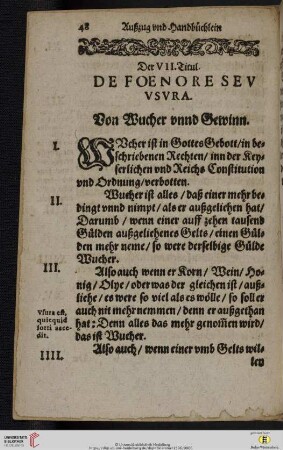 48 Außzug vnd Handbüchlein
Der VII. Titul.
DE FOENORE SEV
VSVRA.
Von Wucher vnnd Gewinn.
I. WUcher ist in Gottes Gebott / in be-
schriebenen Rechten / inn der Key-
serlichen vnd Reichs Constitution
vnd Ordnung / verbotten.
II. Wucher ist alles / daß einer mehr be-
dingt vnnd nimpt / als er außgeliehen hat /
Darumb / wenn einer auff zehen tausend
Gülden außgeliehenes Gelts / einen Gül-
den mehr neme / so were derselbige Gülde
Wucher.
III. Also auch wenn er Korn / Wein / Ho-
nig / Olye / oder was der gleichen ist / auß-
liehe / es were so viel als es wölle / so soll er
auch nit mehr nemmen / denn er außgethan
hat: Denn alles das mehr genom̃en wird /
das ist Wucher.
Vsura est,
quicquid
sorti acce-
dit.
IIII. Also auch / wenn einer vmb Gelts wil-
len